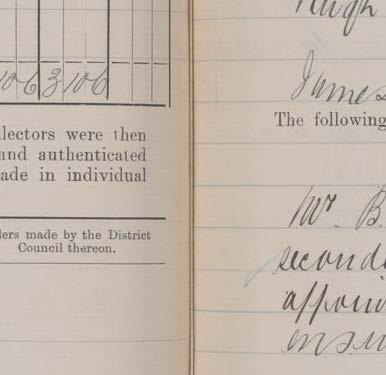 10 6 3 10 6
llectors were then
and authenticated
ade in individual
ders made by the District
Council thereon.
Hugh
James
The following
Mr. B.
second
appoin
ensu